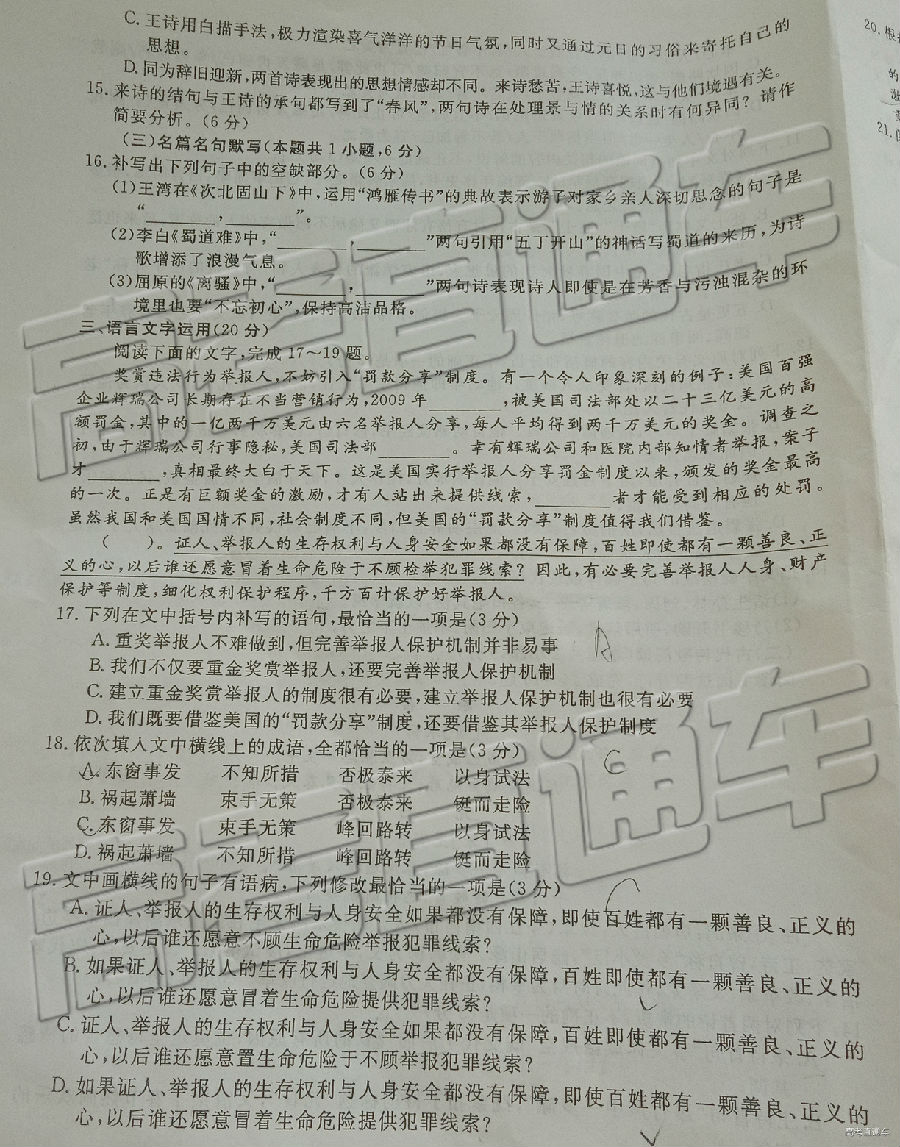 C. 王诗用白描手法,极力渲染喜气洋洋的节日气氛,同时又通过元日的习俗来寄托自己的
思想。
D. 同为辞旧迎新,两首诗表现出的思想情感却不同。来诗愁苦,王诗喜悦,这与他们境遇有关。
15. 来诗的结句与王诗的承句都写到了“春风”,两句诗在处理景与情的关系时有何异同?请作
简要分析。(6分)
(三)名篇名句默写(本题共1小题,6分)
16. 补写出下列句子中的空缺部分。(6分)
(1)王湾在《次北固山下》中,运用“鸿雁传书”的典故表示游子对家乡亲人深切思念的句子是
“________,________”。
(2)李白《蜀道难》中,“________,________”两句引用“五丁开山”的神话写蜀道的来历,为诗
歌增添了浪漫气息。
(3)屈原的《离骚》中,“________,________”两句诗表现诗人即使是在芳香与污浊混杂的环
境里也要“不忘初心”,保持高洁品格。
三、语言文字运用(20分)
阅读下面的文字,完成17~19题。
奖赏违法行为举报人,不妨引入“罚款分享”制度。有一个令人印象深刻的例子:美国百强
企业辉瑞公司长期存在不当营销行为,2009年________,被美国司法部处以二十三亿美元的高
额罚金,其中的一亿两千万美元由六名举报人分享,每人平均得到两千万美元的奖金。调查之
初,由于辉瑞公司行事隐秘,美国司法部________。幸有辉瑞公司和医院内部知情者举报,案子
才________,真相最终大白于天下。这是美国实行举报人分享罚金制度以来,颁发的奖金最高
的一次。正是有巨额奖金的激励,才有人站出来提供线索,________者才能受到相应的处罚。
虽然我国和美国国情不同,社会制度不同,但美国的“罚款分享”制度值得我们借鉴。
( )。证人、举报人的生存权利与人身安全如果都没有保障,百姓即使都有一颗善良、正
义的心,以后谁还愿意冒着生命危险于不顾检举犯罪线索?因此,有必要完善举报人人身、财产
保护等制度,细化权利保护程序,千方百计保护好举报人。
17. 下列在文中括号内补写的语句,最恰当的一项是(3分)
A. 重奖举报人不难做到,但完善举报人保护机制并非易事
B. 我们不仅要重金奖赏举报人,还要完善举报人保护机制
C. 建立重金奖赏举报人的制度很有必要,建立举报人保护机制也很有必要
D. 我们既要借鉴美国的“罚款分享”制度,还要借鉴其举报人保护制度
18. 依次填入文中横线上的成语,全都恰当的一项是(3分)
A. 东窗事发 不知所措 否极泰来 以身试法
B. 祸起萧墙 束手无策 否极泰来 铤而走险
C. 东窗事发 束手无策 峰回路转 以身试法
D. 祸起萧墙 不知所措 峰回路转 铤而走险
19. 文中画横线的句子有语病,下列修改最恰当的一项是(3分)
A. 证人、举报人的生存权利与人身安全如果都没有保障,即使百姓都有一颗善良、正义的
心,以后谁还愿意不顾生命危险举报犯罪线索?
B. 如果证人、举报人的生存权利与人身安全都没有保障,百姓即使都有一颗善良、正义的
心,以后谁还愿意冒着生命危险提供犯罪线索?
C. 证人、举报人的生存权利与人身安全如果都没有保障,百姓即使都有一颗善良、正义的
心,以后谁还愿意置生命危险于不顾举报犯罪线索?
D. 如果证人、举报人的生存权利与人身安全都没有保障,即使百姓都有一颗善良、正义的
心,以后谁还愿意冒着生命危险提供犯罪线索?
20. 根
的
21.
A
C
C
高考直通车
高考直通车
高考直通车